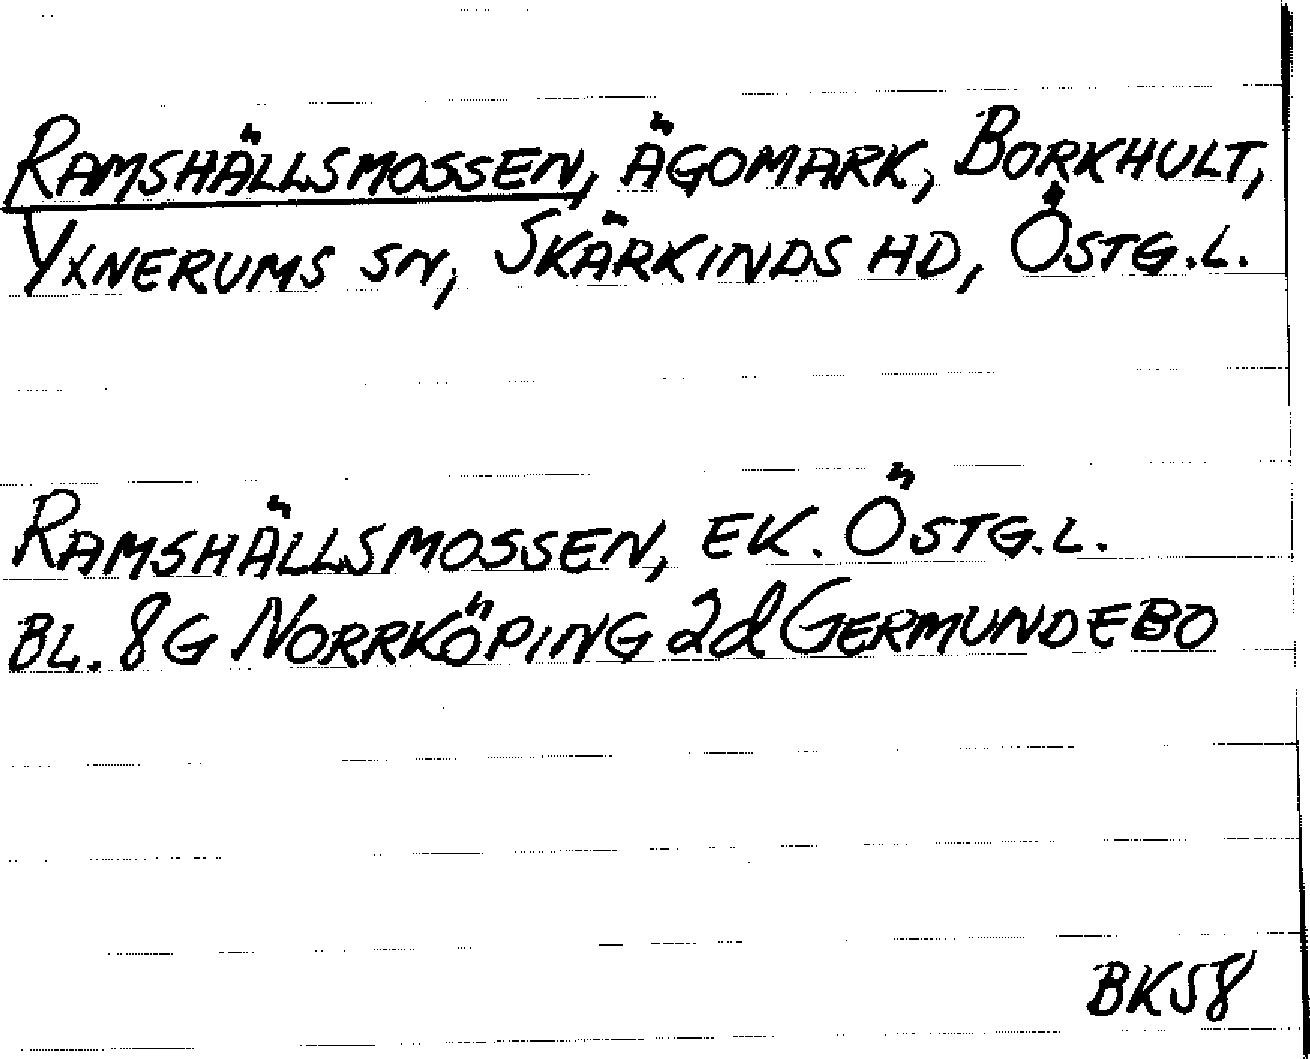 RAMSHÄLLSMOSSEN, ÄGOMARK, BORKHULT,
YXNERUMS SN, SKÄRKINDS HD, ÖSTG.L.
RAMSHÄLLSMOSSEN, EK. ÖSTG.L.
BL. 8G NORRKÖPING 2d GERMUNDEBO
BK58